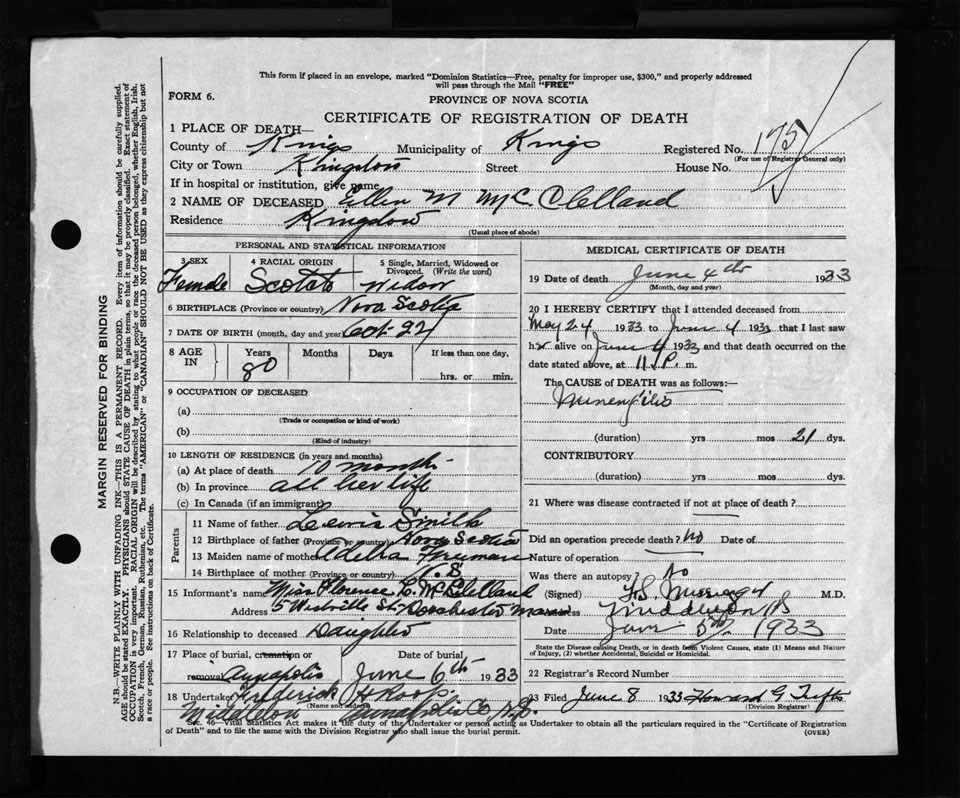 This form if placed in an envelope, marked "Dominion Statistics—Free, penalty for improper use, $300," and properly addressed
will pass through the Mail "FREE"
FORM 6.
PROVINCE OF NOVA SCOTIA
CERTIFICATE OF REGISTRATION OF DEATH
1 PLACE OF DEATH—
County of Kings Municipality of Kings Registered No. 175
(For use of Registrar General only)
City or Town Kingston Street House No.
If in hospital or institution, give name
2 NAME OF DECEASED Ellen M McClelland
Residence Kingston
(Usual place of abode)
PERSONAL AND STATISTICAL INFORMATION
3 SEX 4 RACIAL ORIGIN 5 Single, Married, Widowed or
Divorced. (Write the word)
Female Scotch Widow
6 BIRTHPLACE (Province or country) Nova Scotia
7 DATE OF BIRTH (month, day and year) Oct. 22
8 AGE IN Years Months Days If less than one day,
80 hrs. or min.
9 OCCUPATION OF DECEASED
(a)
(Trade or occupation or kind of work)
(b)
(Kind of industry)
10 LENGTH OF RESIDENCE (in years and months)
(a) At place of death 10 months
(b) In province all her life
(c) In Canada (if an immigrant)
Parents
11 Name of father Lewis Smith
12 Birthplace of father Nova Scotia
13 Maiden name of mother Freeman
14 Birthplace of mother (Province or country) N.S
15 Informant's name Miss Florence C. McClelland
Address 15 St Dorchester Mass
16 Relationship to deceased Daughter
17 Place of burial, cremation or Date of burial
removal Annapolis June 6th 1933
18 Undertaker Frederick H Roop
(Name and address)
Middleton Annapolis Co N.S.
MEDICAL CERTIFICATE OF DEATH
19 Date of death June 4th 1933
(Month, day and year)
20 I HEREBY CERTIFY that I attended deceased from
May 24 1933 to June 4 1933 that I last saw
her alive on June 4 1933 and that death occurred on the
date stated above, at 11 P. m.
The CAUSE of DEATH was as follows:—
(duration) yrs mos 21 dys.
CONTRIBUTORY
(duration) yrs mos dys.
21 Where was disease contracted if not at place of death?
Did an operation precede death? No Date of
Nature of operation
Was there an autopsy? No
(Signed) M.D.
Address Middleton NS
Date June 5th 1933
State the Disease causing Death, or in death from Violent Causes, state (1) Means and Nature
of Injury, (2) whether Accidental, Suicidal or Homicidal.
22 Registrar's Record Number
23 Filed June 8 1933 Howard G Tufts
(Division Registrar)
Sec. 46—Vital Statistics Act makes it the duty of the Undertaker or person acting as Undertaker to obtain all the particulars required in the "Certificate of Registration
of Death" and to file the same with the Division Registrar who shall issue the burial permit.
(OVER)
MARGIN RESERVED FOR BINDING
N.B.—WRITE PLAINLY WITH UNFADING INK—THIS IS A PERMANENT RECORD. Every item of information should be carefully supplied.
AGE should be stated EXACTLY. PHYSICIANS should STATE CAUSE OF DEATH in plain terms, so that it may be properly classified. Exact statement of
OCCUPATION is very important. RACIAL ORIGIN will be described by stating to what people or race the deceased person belonged, whether English, Irish,
Scotch, French, German, Russian, Ruthenian, etc. The terms "AMERICAN" or "CANADIAN" SHOULD NOT BE USED as they express citizenship but not
a race or people. See instructions on back of Certificate.